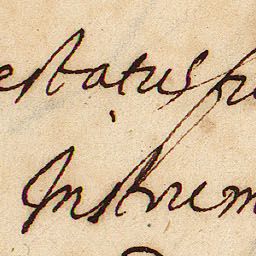 estatus fu
Instrum